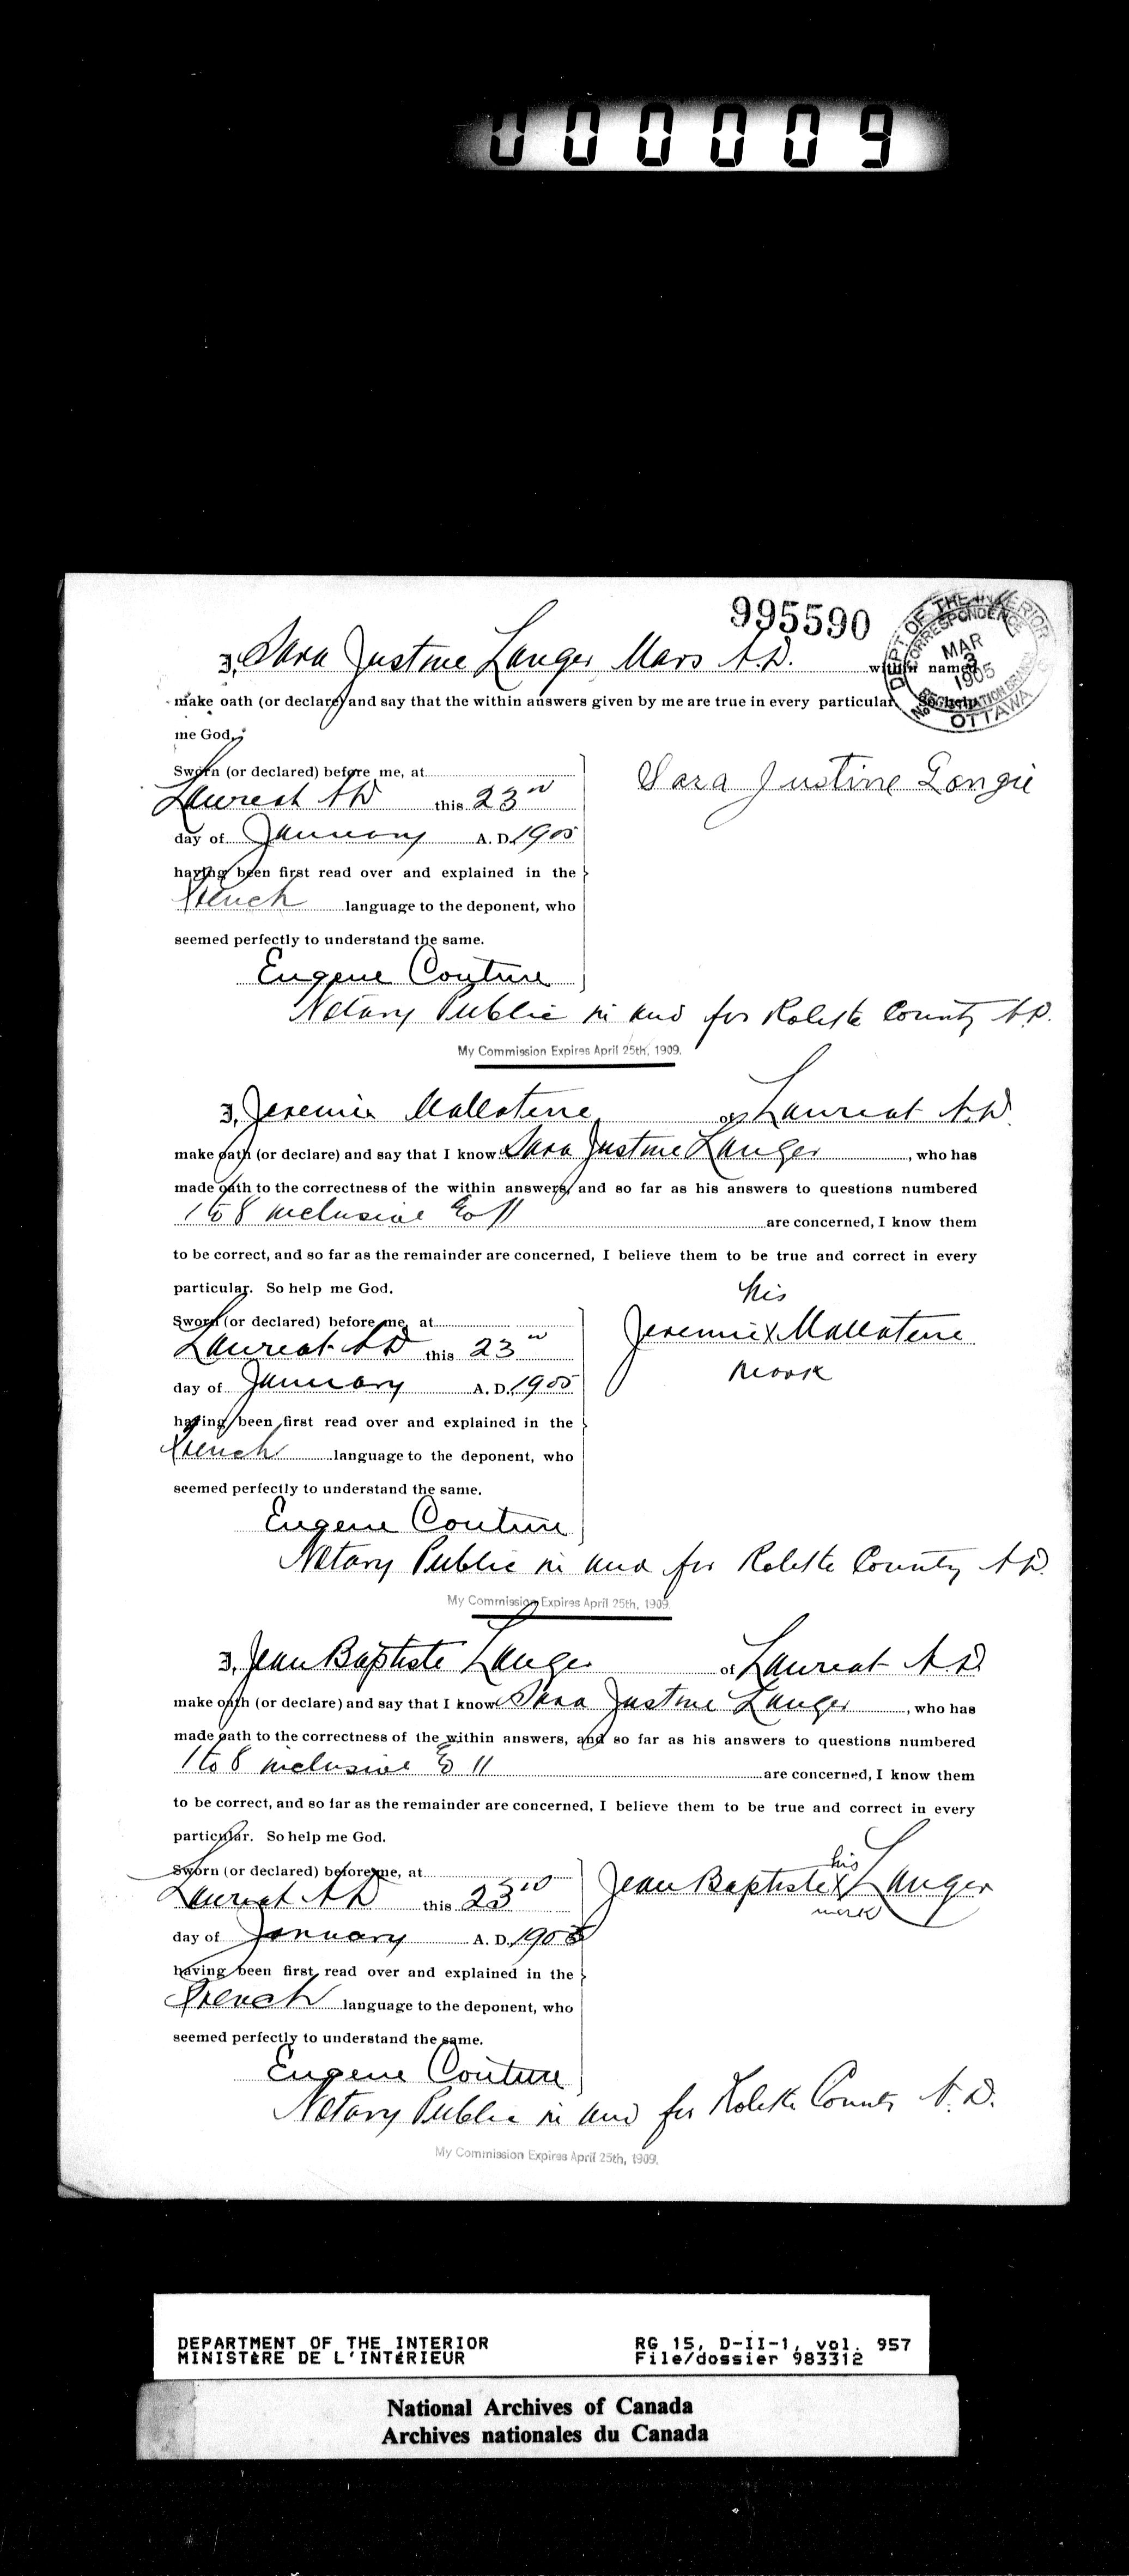 000009
995590
DEPT OF THE INTERIOR
CORRESPONDENCE
MAR
3
1905
REGISTRATION BRANCH
OTTAWA
I, Sara Justine Langer Mars N.D. within named
make oath (or declare) and say that the within answers given by me are true in every particular So help
me God.
Sworn (or declared) before me, at
Laureat ND this 23rd
day of January A. D. 1905
having been first read over and explained in the
French language to the deponent, who
seemed perfectly to understand the same.
Sara Justine Longie
Eugene Couture
Notary Public in and for Rolette County N.D.
My Commission Expires April 25th, 1909.
I, Jeremie Mallaterre of Laureat N.D.
make oath (or declare) and say that I know Sara Justine Langer, who has
made oath to the correctness of the within answers, and so far as his answers to questions numbered
1 to 8 inclusive & 11 are concerned, I know them
to be correct, and so far as the remainder are concerned, I believe them to be true and correct in every
particular. So help me God.
Sworn (or declared) before me, at
Laureat ND this 23rd
day of January A. D. 1905
having been first read over and explained in the
French language to the deponent, who
seemed perfectly to understand the same.
his
Jeremie X Mallaterre
mark
Eugene Couture
Notary Public in and for Rolette County N.D.
My Commission Expires April 25th, 1909.
I, Jean Baptiste Langer of Laureat N.D.
make oath (or declare) and say that I know Sara Justine Langer, who has
made oath to the correctness of the within answers, and so far as his answers to questions numbered
1 to 8 inclusive & 11 are concerned, I know them
to be correct, and so far as the remainder are concerned, I believe them to be true and correct in every
particular. So help me God.
Sworn (or declared) before me, at
Laureat ND this 23rd
day of January A. D. 1905
having been first read over and explained in the
French language to the deponent, who
seemed perfectly to understand the same.
his
Jean Baptiste X Langer
mark
Eugene Couture
Notary Public in and for Rolette County N.D.
My Commission Expires April 25th, 1909.
DEPARTMENT OF THE INTERIOR
MINISTÈRE DE L'INTÉRIEUR
RG 15, D-II-1, vol. 957
File/dossier 983312
National Archives of Canada
Archives nationales du Canada